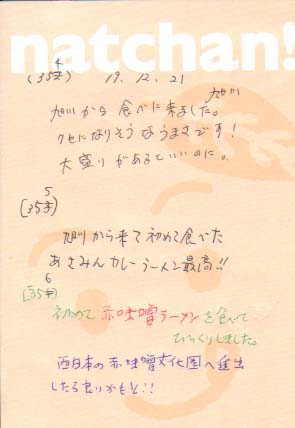 natchan!
4
(35才) 19.12.21
旭川
旭川から食べに来ました。
クセになりそうなうまさです!
大盛りがあるといいのに。
5
(35才)
旭川から来て初めて食べた
あさみんカレーラーメン最高!!
6
(35才)
初めて赤味噌ラーメンを食べて
びっくりしました。
西日本の赤味噌文化圏へ進出
したら良いかもと!!